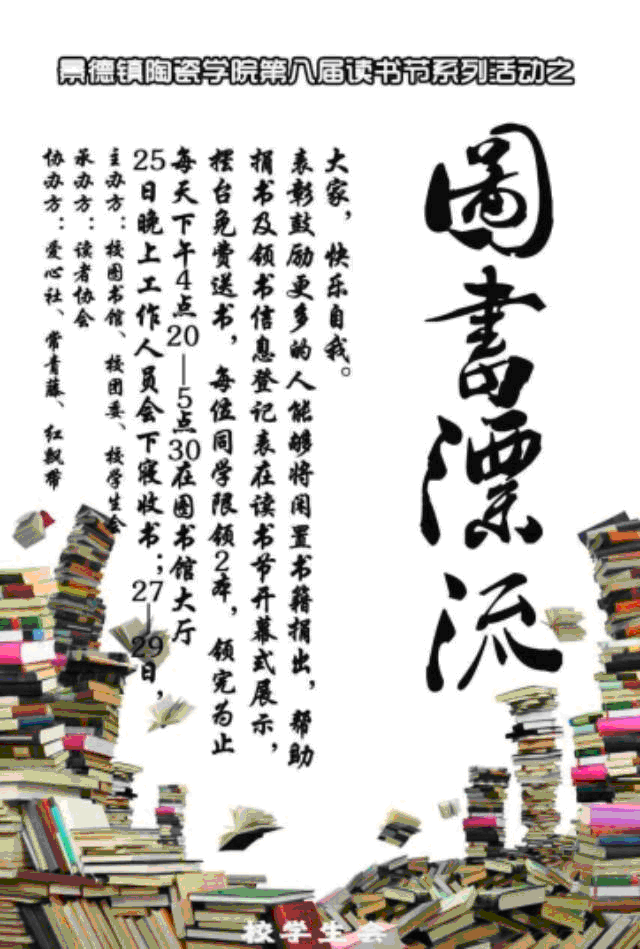 景德镇陶瓷学院第八届读书节系列活动之
圖書漂流
协办方：爱心社、常青藤、红飘带
承办方：读者协会
主办方：校图书馆、校团委、校学生会
25日晚上工作人员会下寝收书；27—29日，
每天下午4点20—5点30在图书馆大厅
摆台免费送书，每位同学限领2本，领完为止
捐书及领书信息登记表在读书节开幕式展示，
表彰鼓励更多的人能够将闲置书籍捐出，帮助
大家，快乐自我。
校学生会